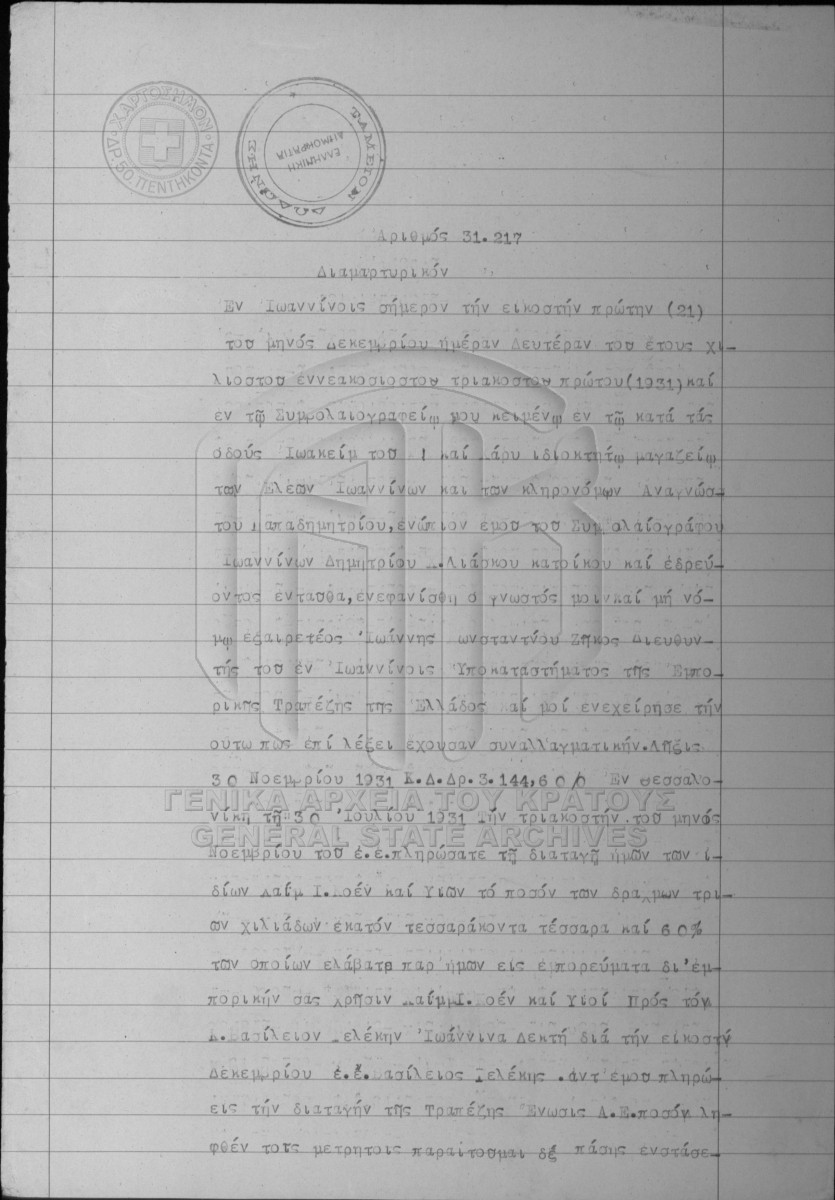 ΧΑΡΤΟΣΗΜΟΝ
ΔΡ. 50. ΠΕΝΤΗΚΟΝΤΑ
ΤΑΜΕΙΟΝ
ΕΛΛΗΝΙΚΗ
ΔΗΜΟΚΡΑΤΙΑ
Αριθμός 31.217
Διαμαρτυρικόν
Εν Ιωαννίνοις σήμερον τήν εικοστήν πρώτην (21)
του μηνός Δεκεμβρίου ημέραν Δευτέραν του έτους χι-
λιοστου εννεακοσιοστου τριακοστου πρώτου(1931) καί
εν τῷ Συμβολαιογραφείῳ μου κειμένῳ εν τῷ κατά τάς
οδούς Ιωακείμ του καί ιδιοκτήτῳ μαγαζείῳ
των Ελεών Ιωαννίνων και των κληρονόμων Αναγνώσ-
του Παπαδημητρίου,ενώπιον εμου του Συμβολαιογράφου
Ιωαννίνων Δημητρίου Λιάσκου κατοίκου καί εδρεύ-
οντος ενταυθα,ενεφανίσθη ο γνωστός μοι καί μή νό-
μῳ εξαιρετέος Ιωάννης Κωνσταντίνου Ζῆκος Διευθυν-
τής του εν Ιωαννίνοις Υποκαταστήματος της Εμπο-
ρικης Τραπέζης της Ελλάδος καί μοί ενεχείρησε τήν
ούτω πως επί λέξει έχουσαν συναλλαγματικήν.Λῆξις
30 Νοεμβρίου 1931 Κ.Δ.Δρ.3.144,60/0 Εν Θεσσαλο-
ΓΕΝΙΚΑ ΑΡΧΕΙΑ ΤΟΥ ΚΡΑΤΟΥΣ
νίκη τῇ 30 Ιουλίου 1931 Τήν τριακοστήν του μηνός
GENERAL STATE ARCHIVES
Νοεμβρίου του έ.έ.πληρώσατε τῇ διαταγῇ ημών των ι-
δίων Χαΐμ Ι.Κοέν καί Υιών τό ποσόν των δραχμων τρι-
ων χιλιάδων εκατόν τεσσαράκοντα τέσσαρα καί 60%
των οποίων ελάβατε παρ'ημων εις εμπορεύματα δι'έμ-
πορικήν σας χρησιν Χαΐμ Ι.Κοέν καί Υιοί Πρός τόν
Κ.Βασίλειον Ιωάννινα Δεκτή διά τήν εικοστή
Δεκεμβρίου έ.έ.Βασίλειος .άντ'έμου πληρώ-
εις τήν διαταγήν της Τραπέζης Ένωσις Α.Ε.ποσόν λη-
φθέν τοις μετρητοις παραίτουμαι δέ πάσης ενστάσε-